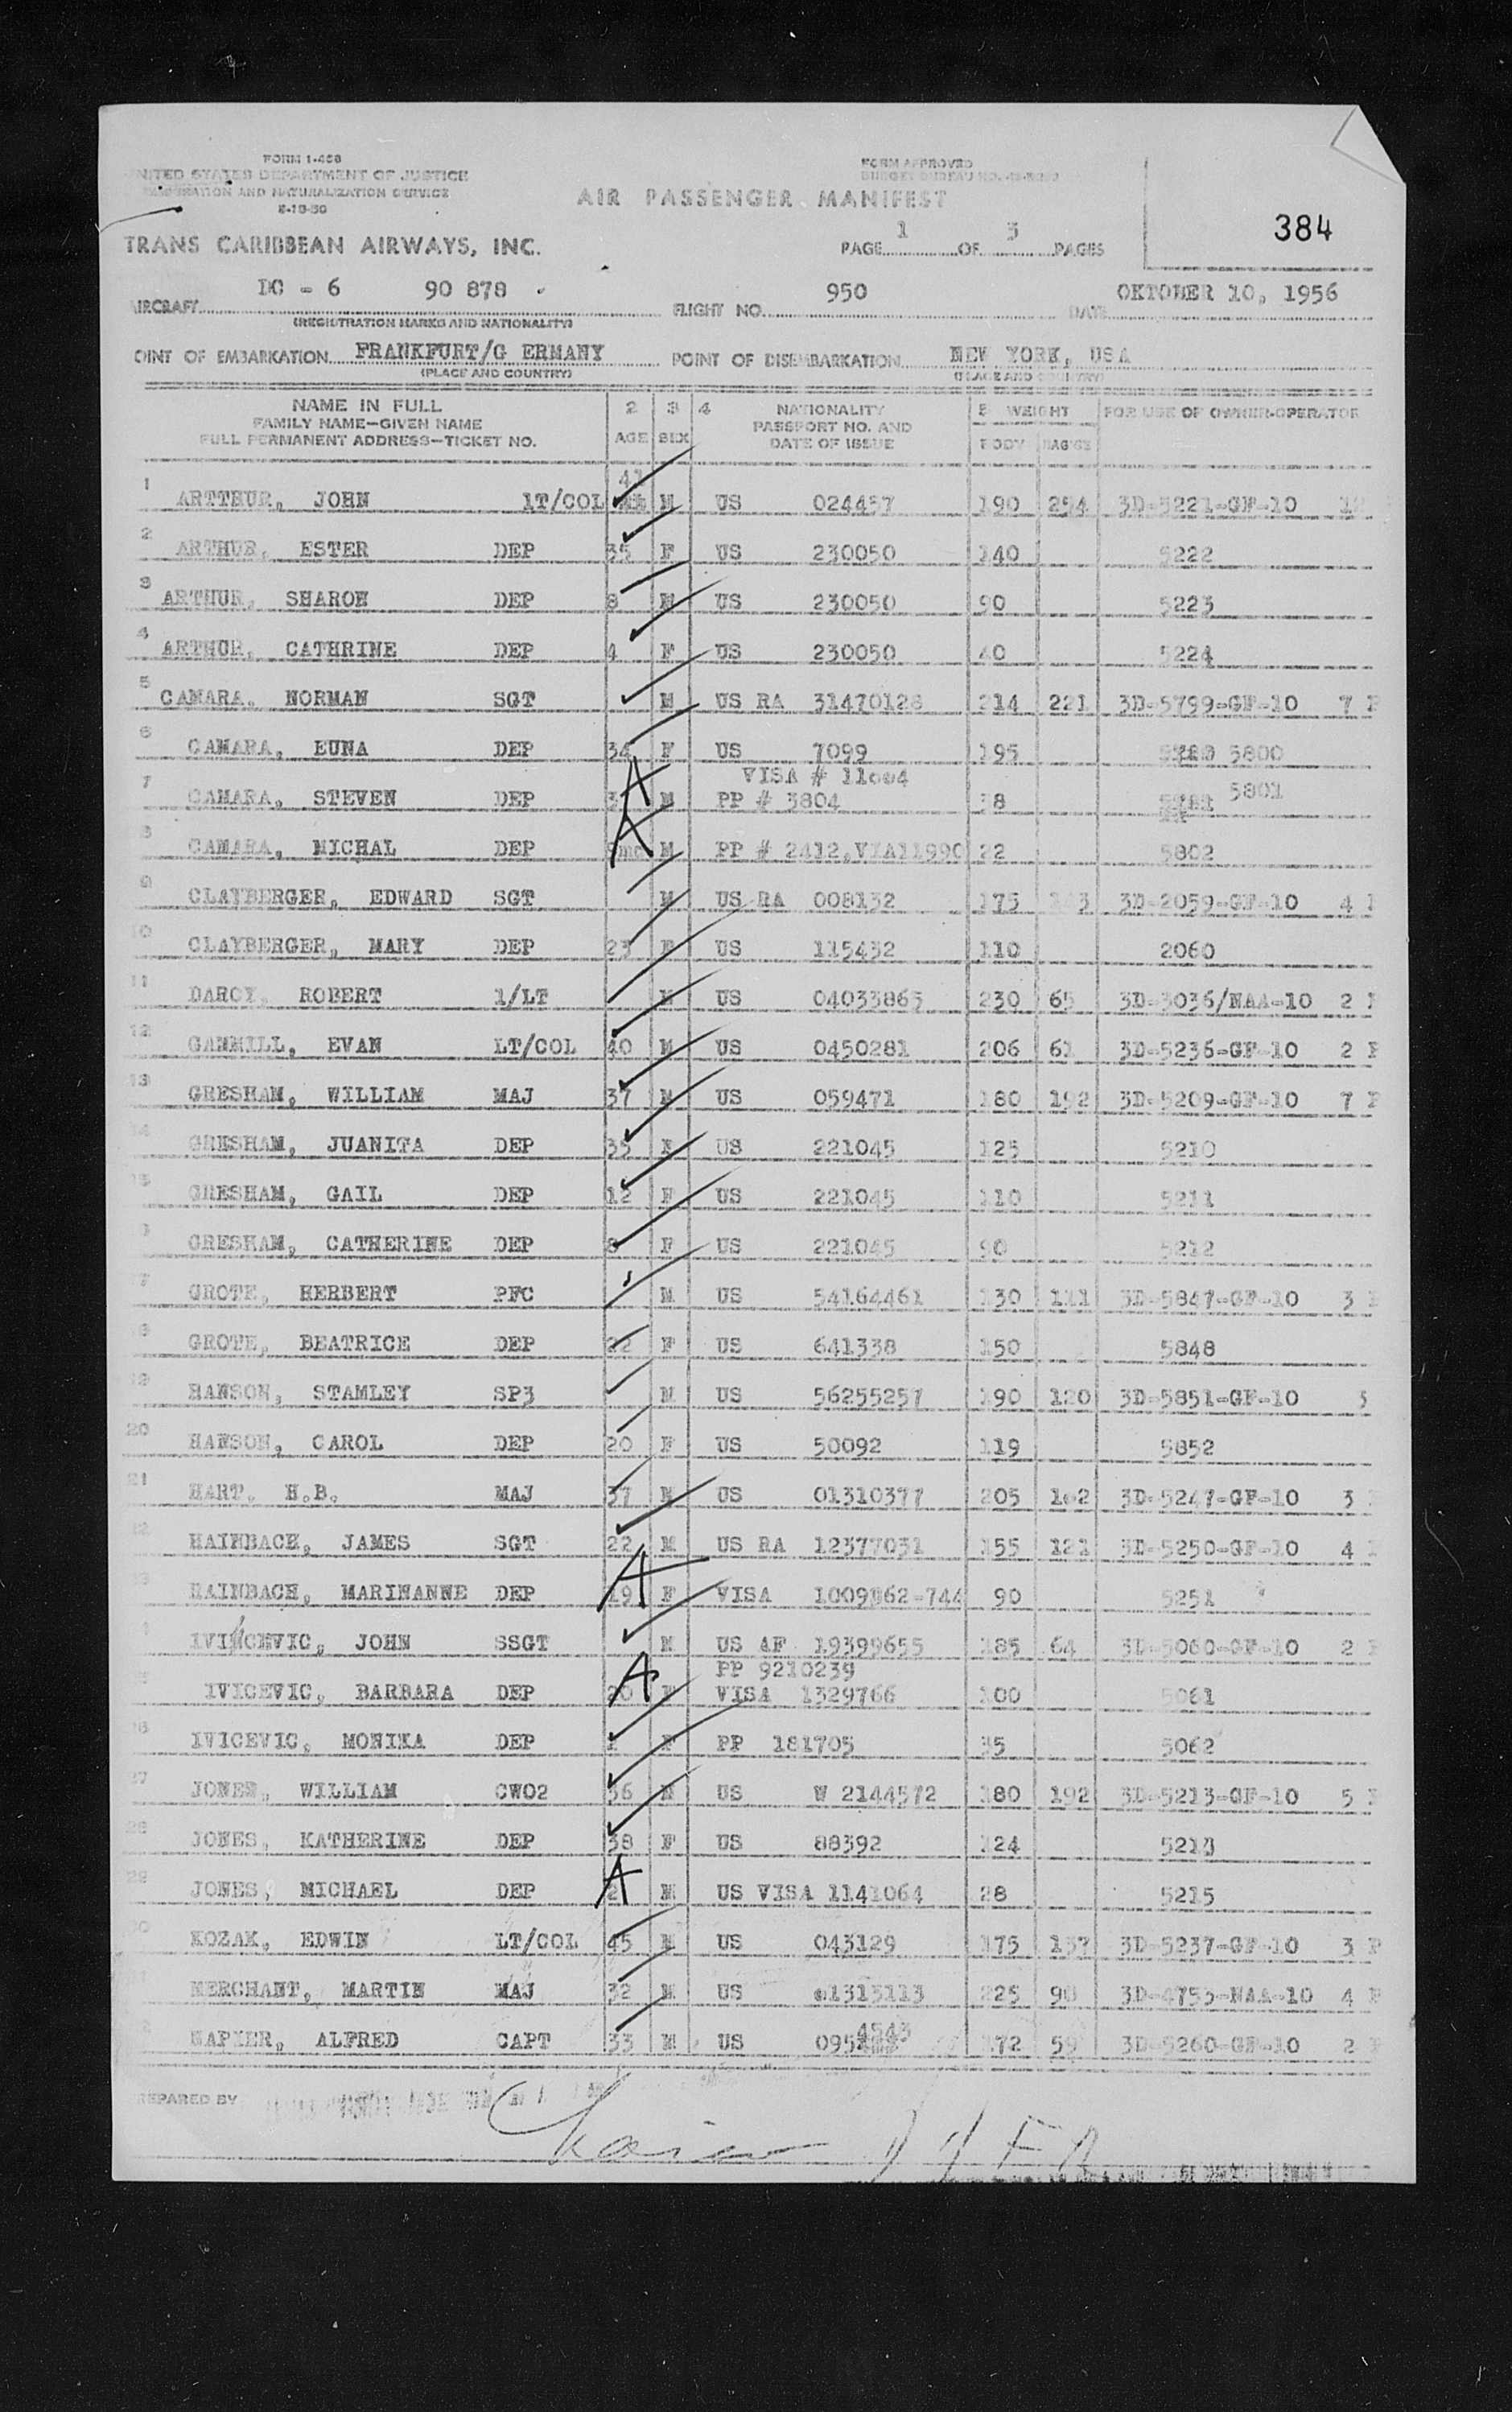 FORM I-466
UNITED STATES DEPARTMENT OF JUSTICE
IMMIGRATION AND NATURALIZATION SERVICE
FORM APPROVED
AIR PASSENGER MANIFEST
384
TRANS CARIBBEAN AIRWAYS, INC.
PAGE 1 OF 3 PAGES
AIRCRAFT DC - 6 90 878 FLIGHT NO. 950 DATE OKTOBER 10, 1956
(REGISTRATION MARKS AND NATIONALITY)
POINT OF EMBARKATION FRANKFURT/G ERMANY POINT OF DISEMBARKATION NEW YORK, USA
(PLACE AND COUNTRY) (PLACE AND COUNTRY)
NAME IN FULL 2 3 4 NATIONALITY 5 WEIGHT FOR USE OF OWNER-OPERATOR
FAMILY NAME—GIVEN NAME PASSPORT NO. AND
FULL PERMANENT ADDRESS—TICKET NO. AGE SEX DATE OF ISSUE BODY BAG'GE
41
1 ARTTHUR, JOHN 1T/COL M US 024457 190 254 3D-5221-GF-10
2 ARTHUR, ESTER DEP 35 F US 230050 140 5222
3 ARTHUR, SHARON DEP 8 US 230050 90 5223
4 ARTHUR, CATHRINE DEP 4 F US 230050 40 5224
5 CAMARA, NORMAN SGT M US RA 31470128 214 221 3D-5799-GF-10 7
6 CAMARA, EUNA DEP 34 F US 7099 195 5800
VISA # 11004
7 CAMARA, STEVEN DEP 3 M PP # 3804 38 5801
8 CAMARA, MICHAL DEP 9mo M PP # 2412,VIA11990 22 5802
9 CLAYBERGER, EDWARD SGT M US RA 008132 175 3D-2059-GF-10 4
10 CLAYBERGER, MARY DEP 23 F US 115432 110 2060
11 DARCY, ROBERT 1/LT M US 04033865 230 65 3D-3036/NAA-10 2
12 GAMMILL, EVAN LT/COL 40 M US 0450281 206 61 3D-5236-GF-10 2
13 GRESHAM, WILLIAM MAJ 37 M US 059471 180 192 3D-5209-GF-10 7
14 GRESHAM, JUANITA DEP 35 F US 221045 125 5210
15 GRESHAM, GAIL DEP 12 F US 221045 110 5211
GRESHAM, CATHERINE DEP 8 F US 221045 90 5212
7 GROTE, HERBERT PFC M US 54164461 130 111 3D-5847-GF-10 3
8 GROTE, BEATRICE DEP 22 F US 641338 150 5848
19 HANSON, STAMLEY SP3 M US 56255257 190 120 3D-5851-GF-10 3
20 HANSON, CAROL DEP 20 F US 50092 119 5852
21 HART, H.B. MAJ 37 M US 01310377 205 162 3D-5247-GF-10 3
22 HAINBACH, JAMES SGT 22 M US RA 12377031 155 121 3D-5250-GF-10 4
3 HAINBACH, MARINANNE DEP 19 F VISA 90 5251
IVICEVIC, JOHN SSGT M US AF 19399655 185 64 3D-5060-GF-10 2
PP 9210239
IVICEVIC, BARBARA DEP 20 F VISA 1329766 100 5061
26 IVICEVIC, MONIKA DEP F PP 181705 35 5062
27 JONES, WILLIAM CWO2 36 M US W 2144572 180 192 3D-5213-GF-10 5
28 JONES, KATHERINE DEP 38 F US 88392 124
29 JONES, MICHAEL DEP 2 M US VISA 1141064 28 5215
30 KOZAK, EDWIN LT/COL 45 M US 043129 175 137 3D-5237-GF-10 3
MERCHANT, MARTIN MAJ 32 M US 01315113 225 3D-4755-NAA-10 4
4543
NAPIER, ALFRED CAPT 33 M US 095 172 59 3D-5260-GF-10 2
PREPARED BY